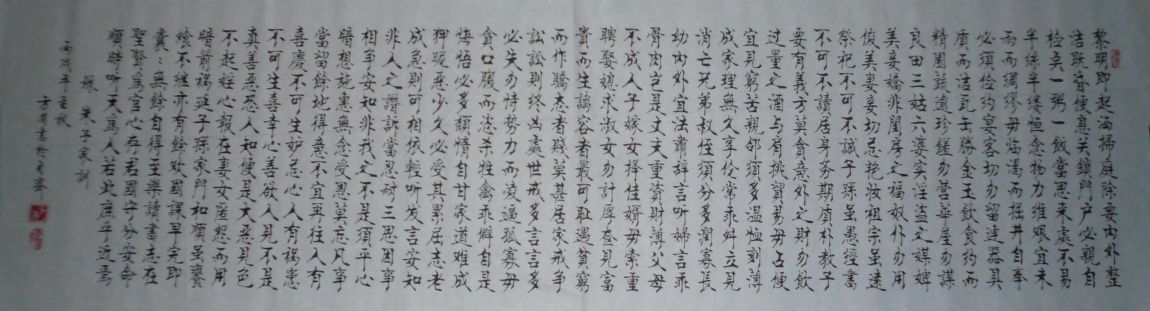 黎明即起洒掃庭除要內外整
洁既昏便息关鎖門户必親自
检点一粥一飯當思来處不易
半絲半縷恒念物力維艱宜未
雨而綢繆毋臨渴而掘井自奉
必須俭約宴客切勿留連器具
質而洁瓦缶勝金玉飲食約而
精園蔬逾珍饈勿營華屋勿謀
良田三姑六婆实淫盜之媒婢
美妾嬌非閨房之福奴仆勿用
俊美妻妾切忌艳妆祖宗虽遠
祭祀不可不誠子孫虽愚經書
不可不讀居身务期質朴教子
要有義方莫貪意外之財勿飲
過量之酒与肩挑貿易毋占便
宜見窮苦親鄰須多温恤刻薄
成家理無久享伦常乖舛立見
消亡兄弟叔侄須分多潤寡長
幼內外宜法肅辞言听婦言乖
骨肉豈是丈夫重資財薄父母
不成人子嫁女择佳婿毋索重
聘娶媳求淑女勿計厚奩見富
貴而生諂容者最可耻遇貧窮
而作驕态者賤莫甚居家戒争
訟訟則终凶處世戒多言言多
必失勿恃势力而凌逼孤寡毋
貪口腹而恣杀牲禽乖僻自是
悔悟必多頹惰自甘家道难成
狎暱恶少久必受其累屈志老
成急則可相依輕听发言安知
非人之譖訴當忍耐三思因事
相争安知非我之不是須平心
暗想施惠無念受恩莫忘凡事
當留餘地得意不宜再往人有
喜慶不可生妒忌心人有禍患
不可生幸心善欲人見不是
真善恶恐人知便是大恶見色
不起心報在妻女匿怨而用
暗箭禍延子孫家門和順虽饔
飧不继亦有餘欢國課早完即
囊橐無餘自得至樂讀書志在
聖賢為官心存君國守分安命
順時听天為人若此庶乎近焉
錄朱子家訓
丙戌年
書於